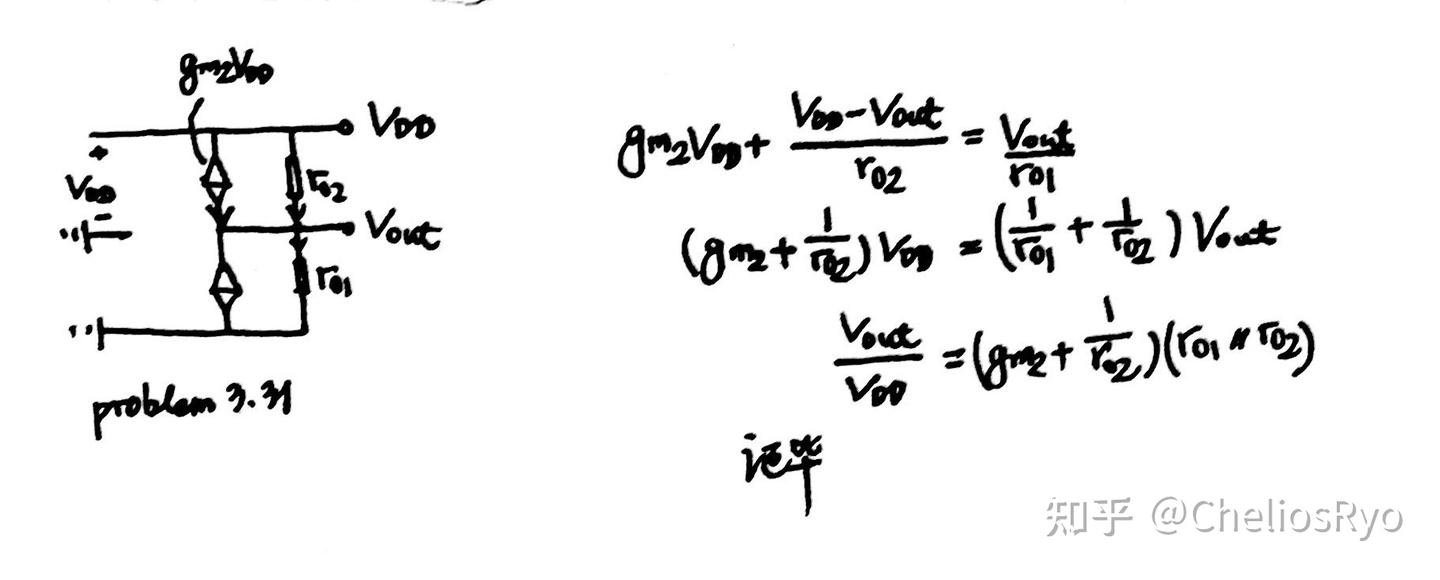 gm2VDD
VDD
+
VDD
-
r02
Vout
r01
problem 3.31
gm2VDD + (VDD-Vout)/r02 = Vout/r01
(gm2 + 1/r02) VDD = (1/r01 + 1/r02) Vout
Vout/VDD = (gm2 + 1/r02)(r01 // r02)
证毕
知乎 @CheliosRyo